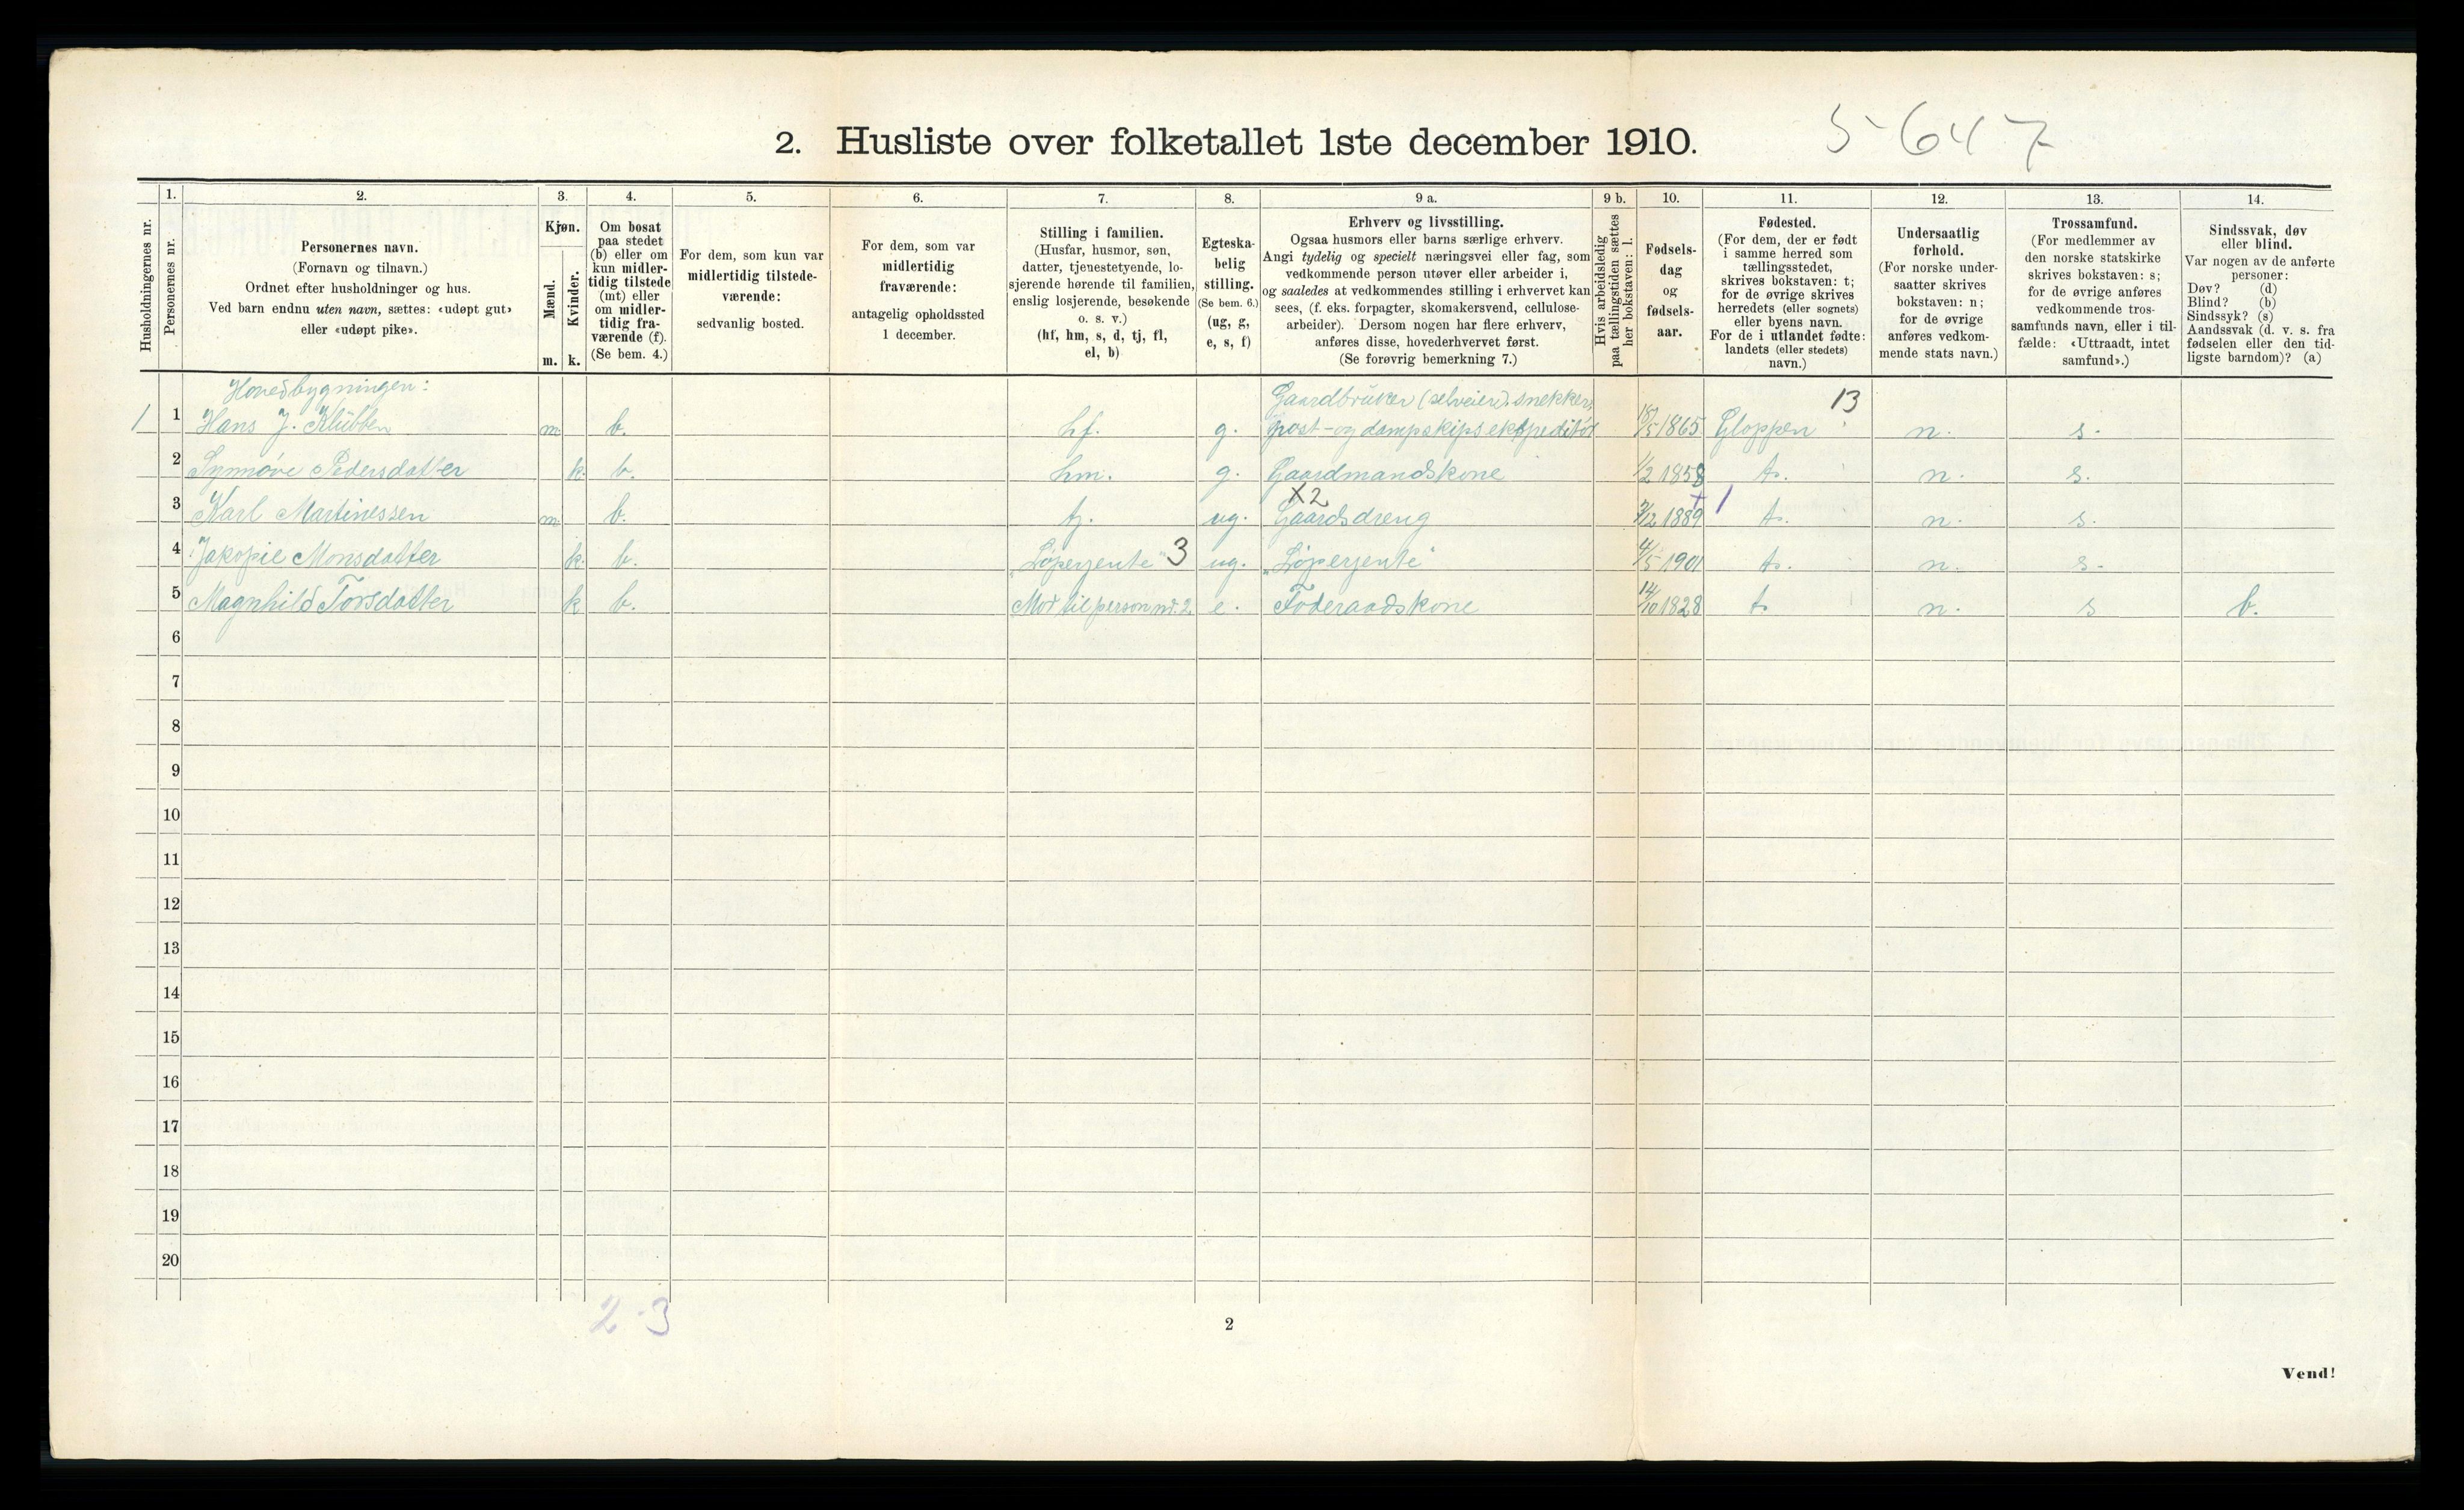 2. Husliste over folketallet 1ste december 1910.
5-647
Husholdningernes nr.
1.
Personernes nr.
2.
Personernes navn.
(Fornavn og tilnavn.)
Ordnet efter husholdninger og hus.
Ved barn endnu uten navn, sættes: «udøpt gut»
eller «udøpt pike».
3.
Kjøn.
Mænd.
m.
Kvinder.
k.
4.
Om bosat
paa stedet
(b) eller om
kun midler-
tidig tilstede
(mt) eller
om midler-
tidig fra-
værende (f).
(Se bem. 4.)
5.
For dem, som kun var
midlertidig tilstede-
værende:
sedvanlig bosted.
6.
For dem, som var
midlertidig
fraværende:
antagelig opholdssted
1 december.
7.
Stilling i familien.
(Husfar, husmor, søn,
datter, tjenestetyende, lo-
sjerende hørende til familien,
enslig losjerende, besøkende
o. s. v.)
(hf, hm, s, d, tj, fl,
el, b)
8.
Egteska-
belig
stilling.
(Se bem. 6.)
(ug, g,
e, s, f)
9 a.
Erhverv og livsstilling.
Ogsaa husmors eller barns særlige erhverv.
Angi tydelig og specielt næringsvei eller fag, som
vedkommende person utøver eller arbeider i,
og saaledes at vedkommendes stilling i erhvervet kan
sees, (f. eks. forpagter, skomakersvend, cellulose-
arbeider). Dersom nogen har flere erhverv,
anføres disse, hovederhvervet først.
(Se forøvrig bemerkning 7.)
9 b.
Hvis arbeidsledig
paa tællingstiden sættes
her bokstaven: l.
10.
Fødsels-
dag
og
fødsels-
aar.
11.
Fødested.
(For dem, der er født
i samme herred som
tællingsstedet,
skrives bokstaven: t;
for de øvrige skrives
herredets (eller sognets)
eller byens navn.
For de i utlandet fødte:
landets (eller stedets)
navn.)
12.
Undersaatlig
forhold.
(For norske under-
saatter skrives
bokstaven: n;
for de øvrige
anføres vedkom-
mende stats navn.)
13.
Trossamfund.
(For medlemmer av
den norske statskirke
skrives bokstaven: s;
for de øvrige anføres
vedkommende tros-
samfunds navn, eller i til-
fælde: «Uttraadt, intet
samfund».)
14.
Sindssvak, døv
eller blind.
Var nogen av de anførte
personer:
Døv? (d)
Blind? (b)
Sindssyk? (s)
Aandssvak (d. v. s. fra
fødselen eller den tid-
ligste barndom)? (a)
Hovedbygningen:
Gaardbruker (selveier), snekker, 13
1 1 Hans J. Klübben m. b. hf. g. post- og dampskipsekspeditör 18/5 1865 Gloppen n. s.
2 Synnöve Pedersdatter k. b. hm. g. Gaardmandskone 1/2 1858 t. n. s.
X2
3 Karl Martinessen m. b. tj. ug. Gaardsdreng 7/12 1889 1 t. n. s.
4 Jakopie Monsdatter k. b. „Löperjente" 3 ug. „Löperjente" 4/5 1901 t. n. s.
5 Magnhild Torsdatter k b. Mor til person nr. 2. e. Föderaadskone 14/10 1828 t n. s b.
6
7
8
9
10
11
12
13
14
15
16
17
18
19
20
2-3
2
Vend!